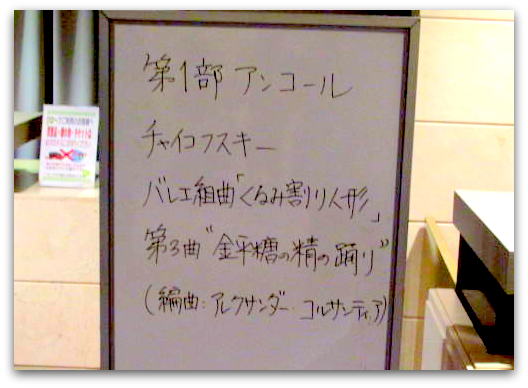 第1部 アンコール
チャイコフスキー
バレエ組曲「くるみ割り人形」
第3曲"金平糖の精の踊り"
(編曲:アレクサンダー・コルサンティア)